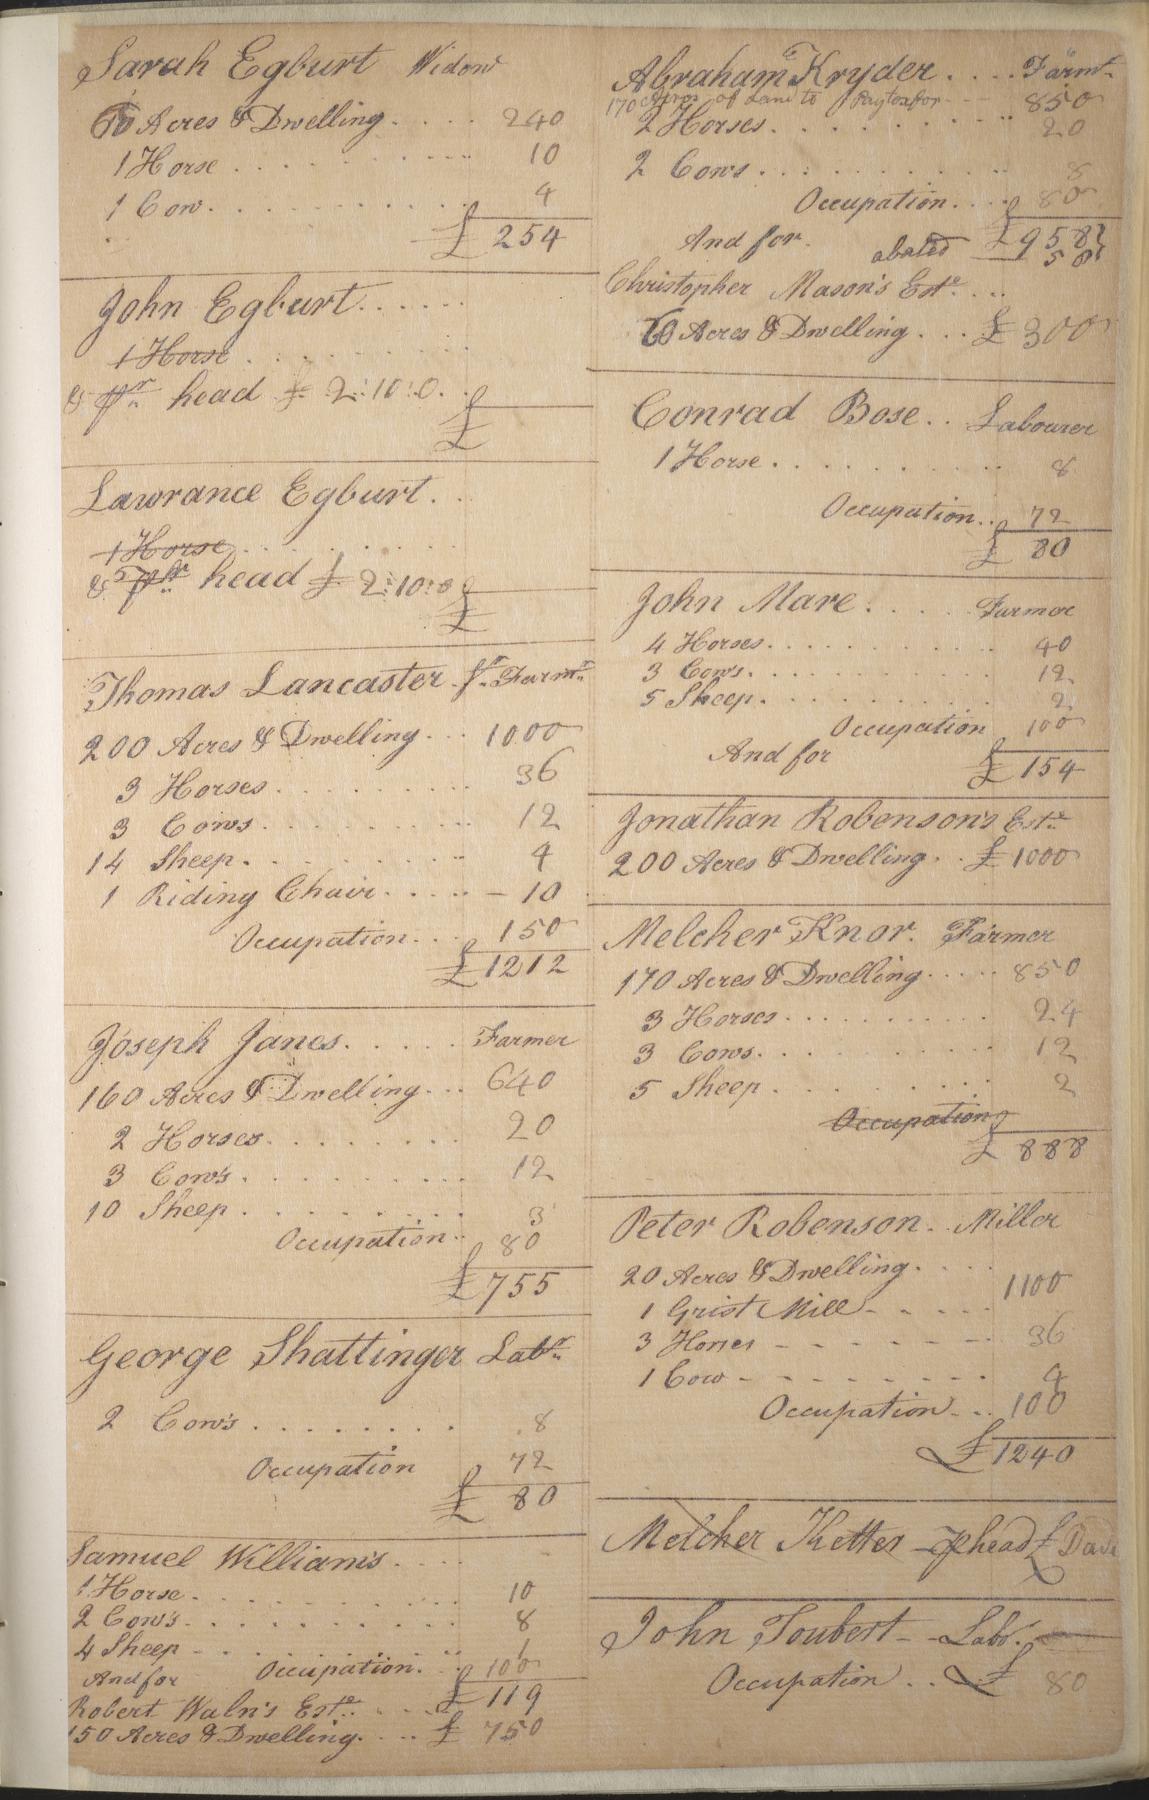 Sarah Egburt Widow
60 Acres & Dwelling . . . . 240
1 Horse . . . . 10
1 Cow . . . . 4
£ 254
John Egburt . . . . .
1 Horse . . . .
& pr head £ 2:10:0.
£
Lawrance Egburt . .
1 Horse . . . .
& pr head £ 2:10:0
£
Thomas Lancaster Farmr
200 Acres & Dwelling . . . 1000
3 Horses . . . . 36
3 Cows . . . . 12
14 Sheep . . . . 4
1 Riding Chair . . . . 10
Occupation . . . 150
£ 1212
Joseph Janes . . . . . Farmer
160 Acres & Dwelling . . . 640
2 Horses . . . . 20
3 Cow's . . . . 12
10 Sheep . . . . 3
Occupation . . 80
£ 755
George Shattinger Labr
2 Cow's . . . . 8
Occupation 72
£ 80
Samuel William's . . . .
1 Horse . . . . 10
2 Cow's . . . . 8
4 Sheep . . . . 1
And for Occupation . . . 100
£ 119
Robert Waln's Este . . . .
150 Acres & Dwelling . . . . £ 750
Abraham Kryder . . . . Farmr
170 Acres of Land to pay tax for 850
2 Horses . . . . 20
2 Cows . . . . 8
Occupation . . . . 80
And for £ 958
abated 58
Christopher Mason's Este . . .
60 Acres & Dwelling . . . £ 300
Conrad Bose . . Labourer
1 Horse . . . . 8
Occupation . . 72
£ 80
John Mare . . . . . Farmer
4 Horses . . . . 40
3 Cow's . . . . 12
5 Sheep . . . . 2
Occupation 100
And for £ 154
Jonathan Robenson's Este
200 Acres & Dwelling . . £ 1000
Melcher Knor. Farmer
170 Acres & Dwelling . . . . . 850
3 Horses . . . . 24
3 Cows . . . . 12
5 Sheep . . . . 2
Occupation
£ 888
Peter Robenson . . Miller
20 Acres & Dwelling . . . .
1 Grist Mill - - - - - 1100
3 Horses - - - - - 36
1 Cow - - - - - 4
Occupation - . . 100
£ 1240
Melcher Ketter head £
John Toubert - - Labr.
Occupation . . £ 80